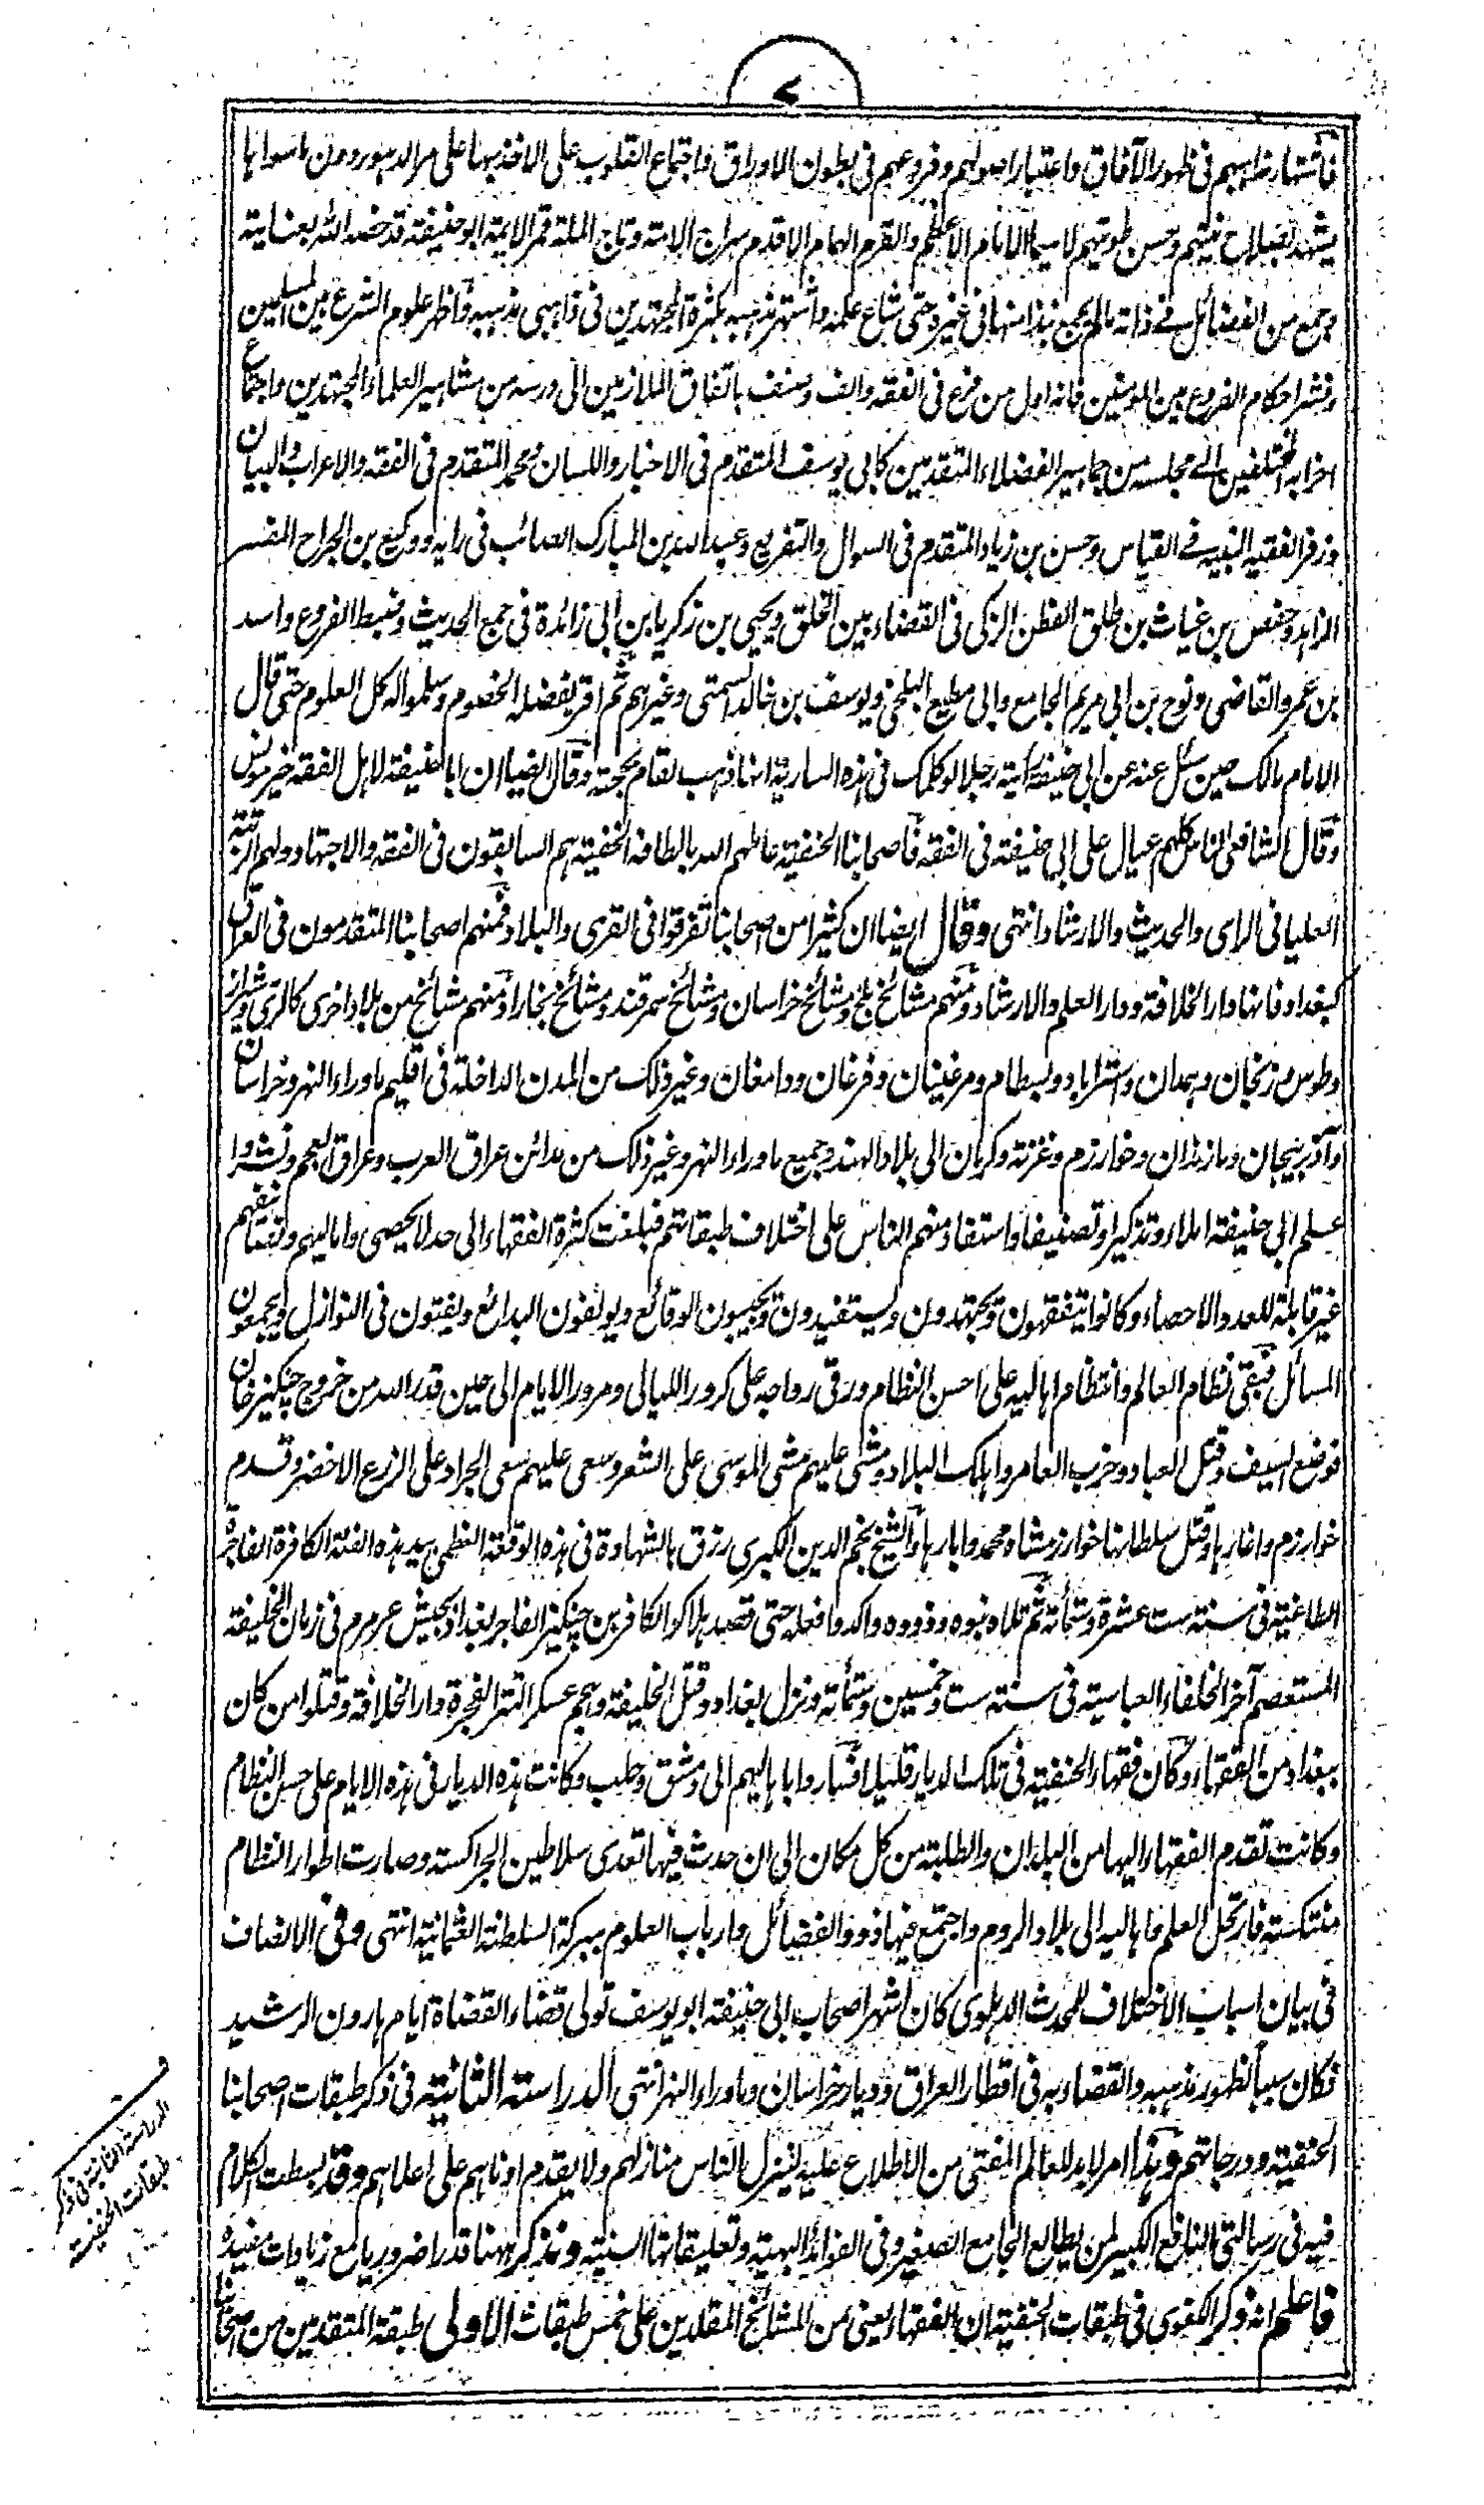 ٧
فاشتهار مذاهبهم فى ظهور الآفاق واعتبار اصولهم وفروعهم فى بطون الاوراق واجتماع القلوب على الاخذ بها على مر الدهور دون ما سواها
يشهد بصلاح نيتهم وحسن طويتهم لا سيما الامام الاعظم والقرم الهمام الاقدم سراج الامة وتاج الملة قمر الائمة ابو حنيفة قد خصه الله بعنايته
وجمع من الفضائل فى ذاته ما لم يجمع نبذا منها فى غيره حتى شاع علمه واشتهر مذهبه بكثرة المجتهدين فى ذاهبى مذهبه واظهر علوم الشرع بين المسلمين
ونشر احكام الفروع بين المومنين فانه اول من فرع فى الفقه والف وصنف باتفاق الملازمين الى درسه من مشاهير العلماء المجتهدين واجتماع
احزابه المختلفين الى مجلسه من جماهير الفضلاء المتقدمين كابى يوسف المتقدم فى الاخبار واللسان ومحمد المتقدم فى الفقه والاعراب والبيان
وزفر الفقيه النبيه فى القياس وحسن بن زياد المتقدم فى السوال والتفريع وعبد الله بن المبارك الصائب فى رايه ووكيع بن الجراح المفسر
الزاهد وحفص بن غياث بن طلق الفطن الزكى فى القضاء بين الخلق ويحيى بن زكريا بن ابى زائدة فى جمع الحديث وضبط الفروع واسد
بن عمرو القاضى ونوح بن ابى مريم الجامع وابى مطيع البلخى ويوسف بن خالد السمتى وغيرهم ثم اقر بفضله الخصوم وسلموا له كل العلوم حتى قال
الامام مالك حين سئل عنه عن ابى حنيفة رأيته رجلا لو كلمك فى هذه السارية انها ذهب لقام بحجة وقال ايضا ان ابا حنيفة لاهل الفقه خير مونس
وقال الشافعى الناس كلهم عيال على ابى حنيفة فى الفقه فاصحابنا الحنفية عاملهم الله بالطافه الخفية هم السابقون فى الفقه والاجتهاد ولهم الرتبة
العليا فى الراى والحديث والارشاد انتهى وقال ايضا ان كثيرا من اصحابنا تفرقوا فى القرى والبلاد فمنهم اصحابنا المتقدمون فى العراق
كبغداد فانها دار الخلافة ودار العلم والارشاد ومنهم مشائخ بلخ ومشائخ خراسان ومشائخ سمرقند ومشائخ بخارا ومنهم مشائخ من بلاد اخرى كالرى وشيراز
وطوس وزنجان وهمدان واستراباد وبسطام ومرغينان وفرغان ودامغان وغير ذلك من المدن الداخلة فى اقليم ماوراء النهر وخراسان
وآذربيجان ومازندران وخوارزم وغزنة وكرمان الى بلاد الهند وجميع ماوراء النهر وغير ذلك من مدائن عراق العرب وعراق العجم ونشروا
علم ابى حنيفة املاء وتذكيرا وتصنيفا واستفاد منهم الناس على اختلاف طبقاتهم فبلغت كثرة الفقهاء الى حد لا يحصى واماليهم وتصانيفهم
غير قابلة للعد والاحصاء وكانوا يتفقهون ويجتهدون ويستفيدون ويجيبون الوقائع ويولفون البدائع ويفتون فى النوازل ويجمعون
المسائل فبقى نظام العالم وانتظام اهاليه على احسن النظام ورقى رواجه على كرور الليالى ومرور الايام الى حين قدر الله من خروج چنكيز خان
فوضع السيف وقتل العباد وخرب العامر واهلك البلاد ومشى عليهم مشى الموسى على الشعر وسعى عليهم سعى الجراد على الزرع الاخضر وقدم
خوارزم واغارها وقتل سلطانها خوارزمشاه محمد وابارها والشيخ نجم الدين الكبرى رزق بالشهادة فى هذه الوقعة العظمى بيد هذه الفئة الكافرة الفاجرة
الطاغية فى سنة ست عشرة وستمائة ثم تلاه بنوه وذووه واكدوا فعله حتى قصد هلاكو الكافر بن چنكيز الفاجر بغداد بجيش عرمرم فى زمان الخليفة
المستعصم آخر الخلفاء العباسية فى سنة ست وخمسين وستمائة ونزل بغداد وقتل الخليفة وهجم عسكر التتر الفجرة دار الخلافة وقتلوا من كان
ببغداد من الفقهاء وكان فقهاء الحنفية فى تلك الديار قليلا فساروا باهاليهم الى دمشق وحلب وكانت هذه الديار فى هذه الايام على حسن النظام
وكانت تقدم الفقهاء اليها من البلدان والطلبة من كل مكان الى ان حدث فيها تعدى سلاطين الجراكسة وصارت اطوار النظام
منتكسة فارتحل العلم واهاليه الى بلاد الروم واجتمع فيها ذوو الفضائل وارباب العلوم ببركة السلطنة العثمانية انتهى وفى الانصاف
فى بيان اسباب الاختلاف للمحدث الدهلوى كان اشهر اصحاب ابى حنيفة ابو يوسف تولى قضاء القضاة ايام هارون الرشيد
فكان سببا لظهور مذهبه والقضاء به فى اقطار العراق وديار خراسان وماوراء النهر انتهى الدراسة الثانية فى ذكر طبقات اصحابنا
الحنفية ودرجاتهم وهذا امر لابد للعالم المفتى من الاطلاع عليه لينزل الناس منازلهم ولا يقدم ادناهم على اعلاهم وقد بسطت الكلام
فيه فى رسالتى النافع الكبير لمن يطالع الجامع الصغير وفى الفوائد البهية وتعليقاتها السنية ونذكر ههنا قدرا ضروريا مع زيادات مفيدة
فاعلم انه ذكر الكفوى فى طبقات الحنفية ان الفقهاء يعنى من المشائخ المقلدين على خمس طبقات الاولى طبقة المتقدمين من اصحابنا
الدراسة الثانية فى ذكر
طبقات الحنفية